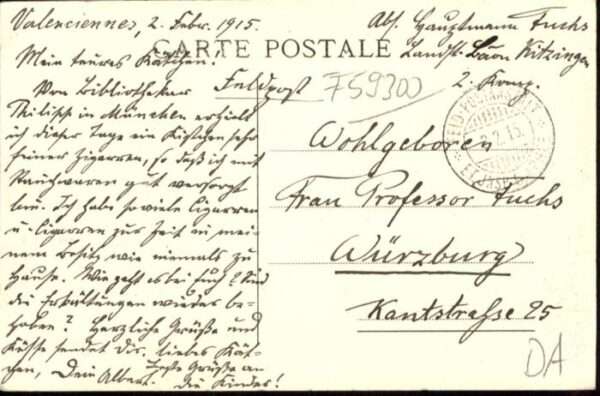 Valenciennes, 2. Febr. 1915.
Abs. Hauptmann Fuchs
Landst. Baon Kitzingen
2. Komp.
CARTE POSTALE
Feldpost
759300
Mein teures Käthchen!
Von Bibliothekar
Philipp in München erhielt
ich dieser Tage ein Kistchen sehr
feiner Zigarren, so daß ich mit
Rauchwaren gut versorgt
bin. Ich habe so viele Cigarren
u. Cigarren zur Zeit in mei-
nem Besitz wie niemals zu
Hause. Wie geht es bei Euch? Sind
die Erkältungen wieder be-
hoben? Herzliche Grüße und
Küsse sendet Dir, liebes Käth-
chen, Dein Albert. Beste Grüße an
die Kinder!
Wohlgeboren
Frau Professor Fuchs
Würzburg
Kantstrasse 25
DA